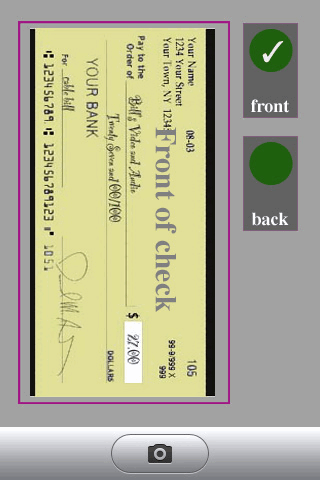 Your Name
1234 Your Street
Your Town, NY 1234
08-03
105
99-9999 X
999
Pay to the
Order of
Bill's Video and Audio
$
27.00
Twenty Seven and 00/100
DOLLARS
YOUR BANK
For cable bill
⑆123456789⑆ 123456789123⑈ 1051
Front of check
front
back